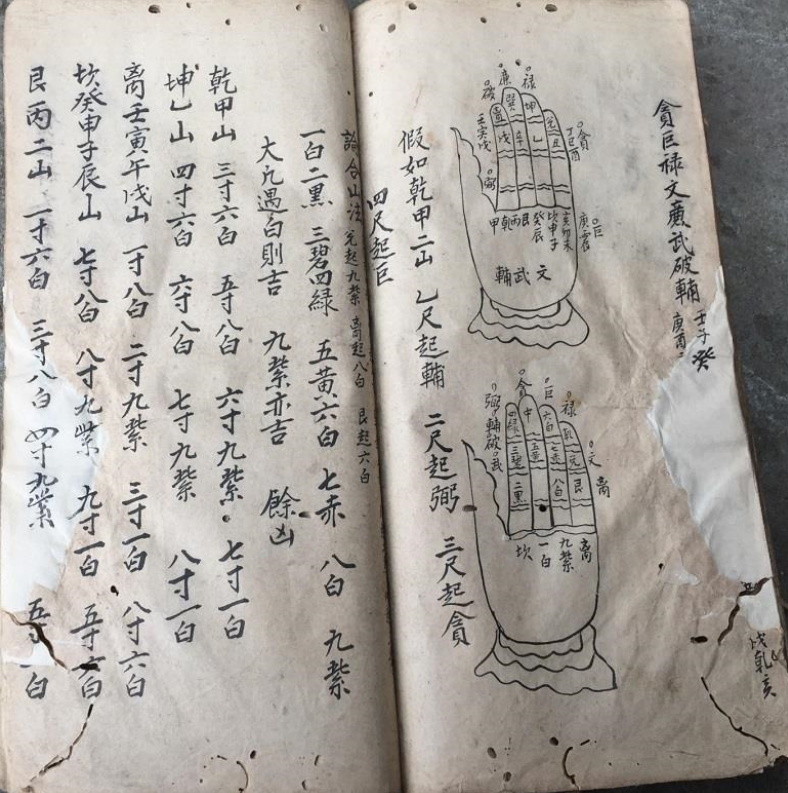 貪巨禄文蔗武破輔
壬子癸
庚酉
戌乾亥
禄
廉
破
壬寅戌
弼
貪
丁巳酉
巨
庚震
坤
乙
甲乾丙艮癸辰坎申子亥卯未
文武輔
假如乾甲二山 乙尺起輔 二尺起弼 三尺起貪
四尺起巨
禄
巨
文
離
弼
輔
破
武
中
六白
七赤
八白
四綠
三碧
二黑
五黄
艮
離
九紫
一白
坎
論合山法 兌起九紫 离起八白 艮起六白
一白二黑 三碧四緑 五黄六白 七赤 八白 九紫
大凡遇白則吉 九紫亦吉 餘凶
乾甲山 三寸六白 五寸八白 六寸九紫 七寸一白
坤乙山 四寸六白 六寸八白 七寸九紫 八寸一白
离壬寅午戌山 一寸八白 二寸九紫 三寸一白 八寸六白
坎癸申子辰山 七寸八白 八寸九紫 九寸一白 五寸六白
艮丙二山 一寸六白 三寸八白 四寸九紫 五寸一白